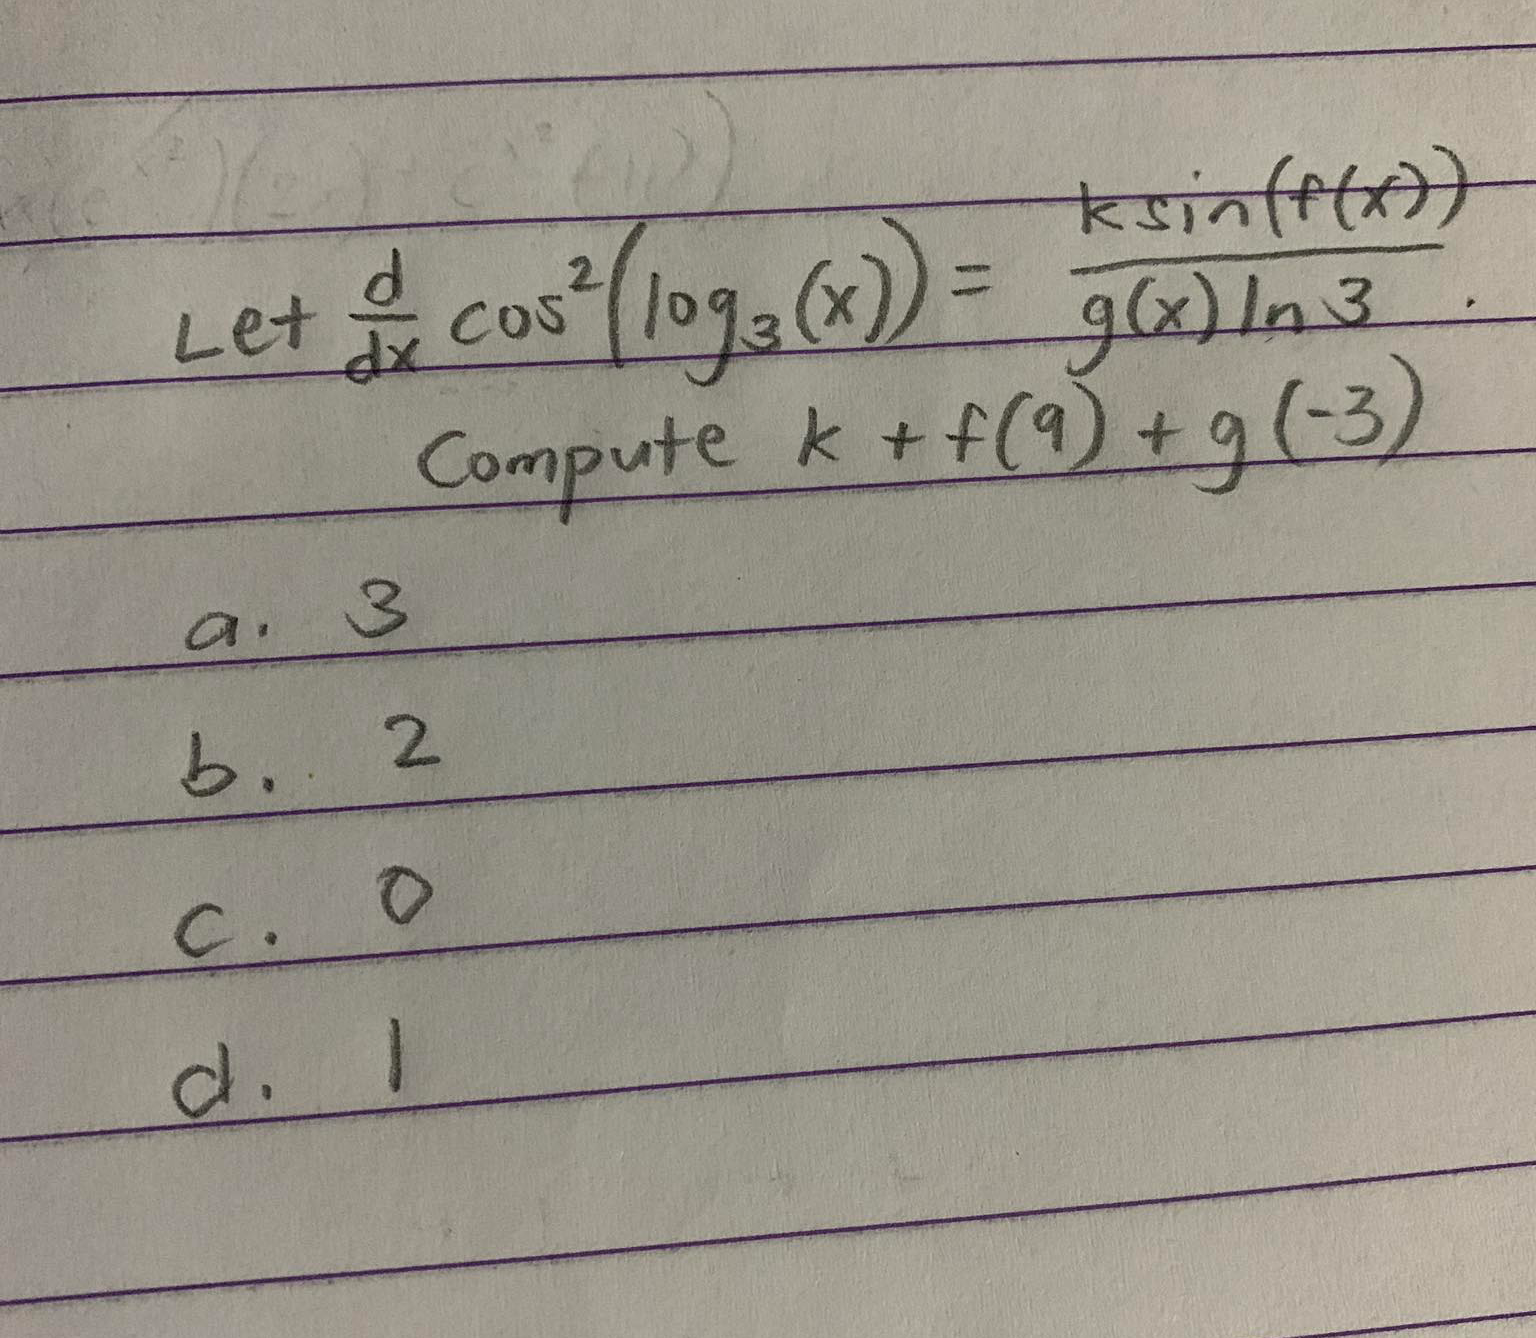 Let d/dx cos²(log₃(x)) = k sin(f(x)) / g(x) ln 3 .
Compute k + f(9) + g(-3)
a. 3
b. 2
c. 0
d. 1